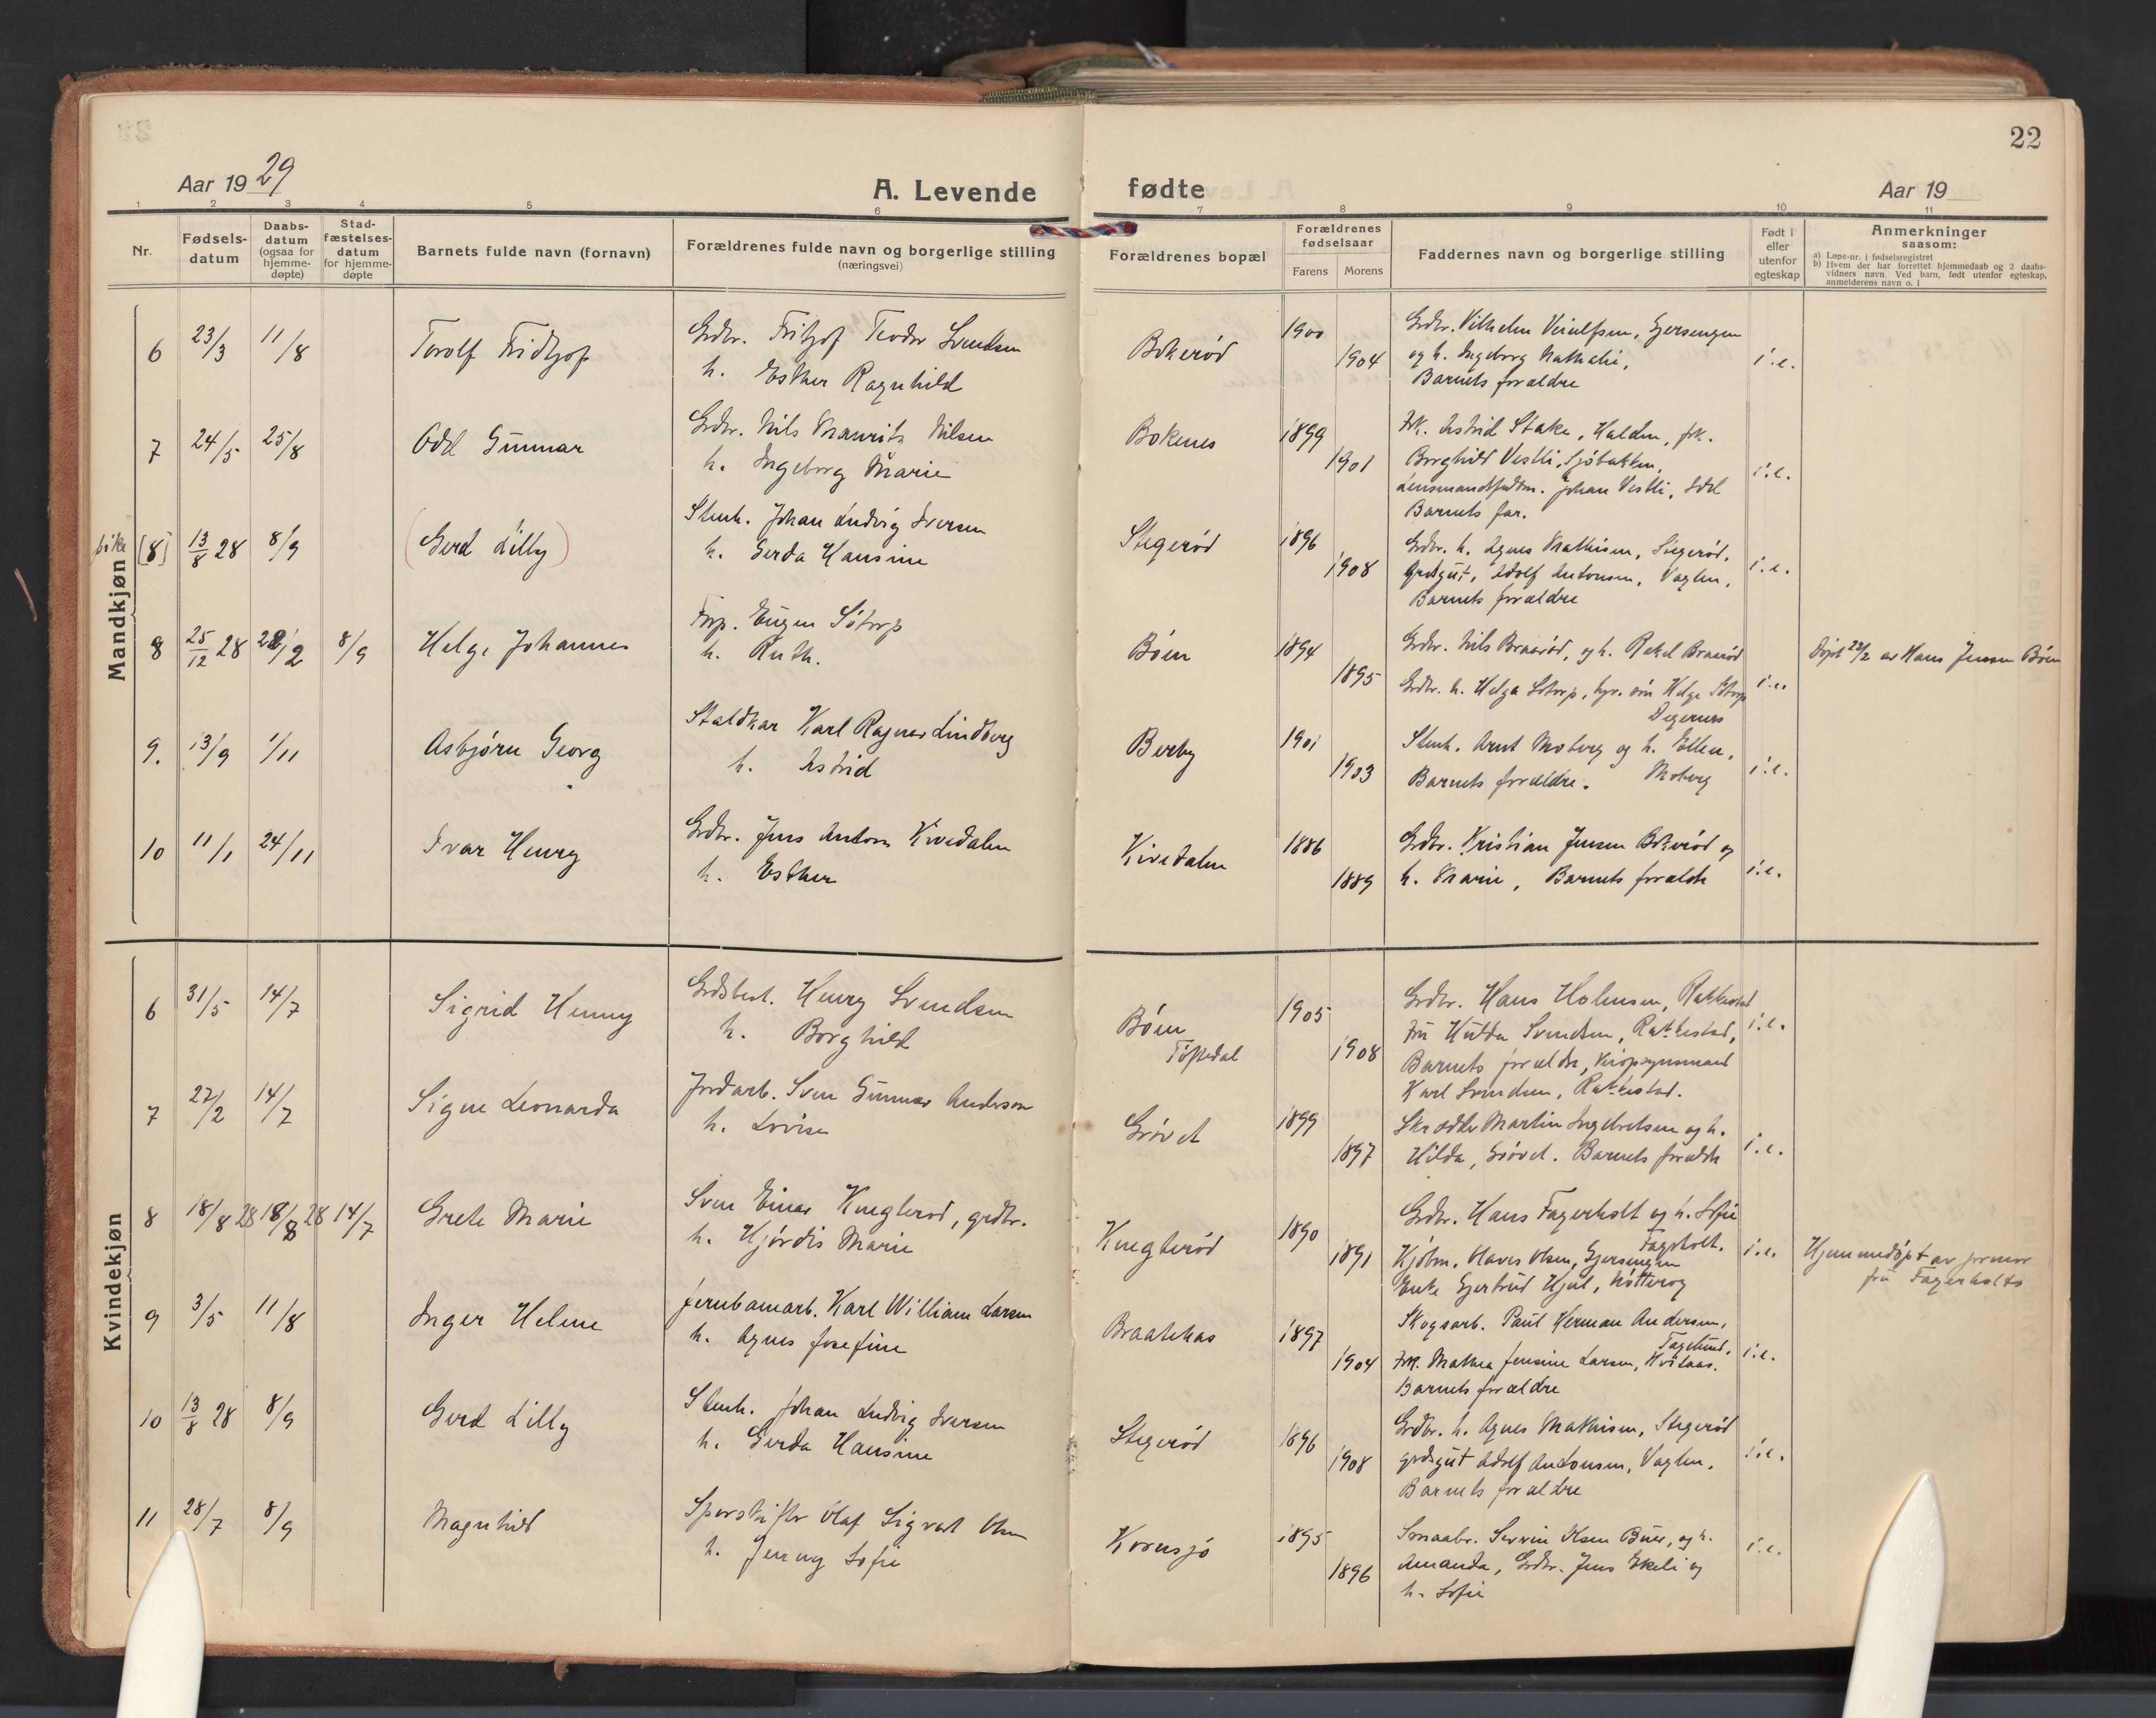 22
Aar 1929
A. Levende fødte
Aar 19
1 2 3 4 5 6 7 8 9 10 11
Nr.
Fødsels-datum
Daabs-datum (ogsaa for hjemme-døpte)
Stad-fæstelses-datum for hjemme-døpte
Barnets fulde navn (fornavn)
Forældrenes fulde navn og borgerlige stilling (næringsvei)
Forældrenes bopæl
Forældrenes fødselsaar
Farens Morens
Faddernes navn og borgerlige stilling
Født i eller utenfor egteskap
Anmerkninger saasom:
a) Løpe-nr. i fødselsregistret
b) Hvem der har forrettet hjemmedaab og 2 daabs-vidners navn. Ved barn, født utenfor egteskap, anmelderens navn o. l
Mandkjøn
6 23/3 11/8 Torolf Fridtjof
Grdbr. Fritjof Teodor Svendsen
h. Esther Ragnhild
Bokerød 1900 1904
Grdbr. Vilhelm Veiulfsen, Gjersengen
og h. Ingeborg Nathalie,
Barnets forældre
i.e.
7 24/5 25/8 Odd Gunnar
Grdbr. Nils Mauritz Nilsen
h. Ingeborg Marie
Bokenes 1899 1901
Frk. Astrid Stake, Halden, frk.
Borghild Vestli, Sjöbakken,
Lensmandsfuldm. Johan Vestli,
Barnets far.
i.e.
pike [8] 13/8 28 8/9 (Gerd Lilly)
Stenh. Johan Ludvig Iversen
h. Gerda Hansine
Stegerød 1896 1908
Grdbr. h. Agnes Mathisen, Stegerød,
Grdsgut, Adolf Antonsen, Vaglen,
Barnets forældre
i.e.
8 25/12 28 22/2 8/9 Helge Johannes
Frp. Eugen Søtorp
h. Ruth.
Bøen 1894 1895
Grdbr. Nils Braarød, og h. Rakel Braarød
Grdbr. h. Helga Søtorp, Helge Søtorp
Degernes
i.e.
Døpt 22/2 av Hans Jensen Bøen
9. 13/9 1/11 Asbjørn Georg
Staldkar Karl Ragnar Lindberg
h. Astrid
Berby 1901 1903
Stenh. Arnt Moberg og h. Ellen,
Barnets forældre. Moberg
i.e.
10 11/1 24/11 Ivar Henry
Grdbr. Jens Anton Kivedalen
h. Esther
Kivedalen 1886 1889
Grdbr. Kristian Jensen Bokerød og
h. Marie, Barnets forældre
i.e.
Kvindekjøn
6 31/5 14/7 Sigrid Henny
Grdsbest. Henry Svendsen
h. Borghild
Bøen
Töftedal
1905 1908
Grdbr. Hans Holmsen, Rakkestad
Fru Hulda Svendsen, Rakkestad,
Barnets forældre, Veiopsynsmand
Karl Svendsen, Rakkestad.
i.e.
7 27/2 14/7 Signe Leonarda
Jordarb. Sven Gunnar Anderson
h. Lovise
Grövet 1899 1897
Skrædder Martin Ingebretsen og h.
Hilda, Grövet. Barnets forældre
i.e.
8 18/8 28 18/8 28 14/7 Grete Marie
Sven Einar Knegterød, grdbr.
h. Hjørdis Marie
Knegterød 1890 1891
Grdbr. Hans Fagerholt og h. Sofie
Fagerholt.
Kjøbm. Olaves Olsen, Gjersengen
Enke Gjertrud Hjul, Nøtterøy
i.e.
Hjemmedøpt av jormor
fru Fagerholts
9 3/5 11/8 Inger Helene
Jernbanearb. Karl William Larsen
h. Agnes Josefine
Braatekas 1897 1904
Skogsarb. Paul Herman Andersen,
Fagelund,
Frk. Mathea Jensine Larsen, Hvitaas.
Barnets forældre
i.e.
10 13/8 28 8/9 Gerd Lilly
Stenh. Johan Ludvig Iversen
h. Gerda Hansine
Stegerød 1896 1908
Grdbr. h. Agnes Mathisen, Stegerød
grdsgut Adolf Antonsen, Vaglen,
Barnets forældre
i.e.
11 28/7 8/9 Magnhild
Sporskifter Olaf Sigvart Olsen
h. Jenny Sofie
Kornsjø 1895 1896
Smaabr. Severin Olsen Buer, og h.
Amanda, Grdbr. Jens Ekeli og
h. Sofie
i.e.